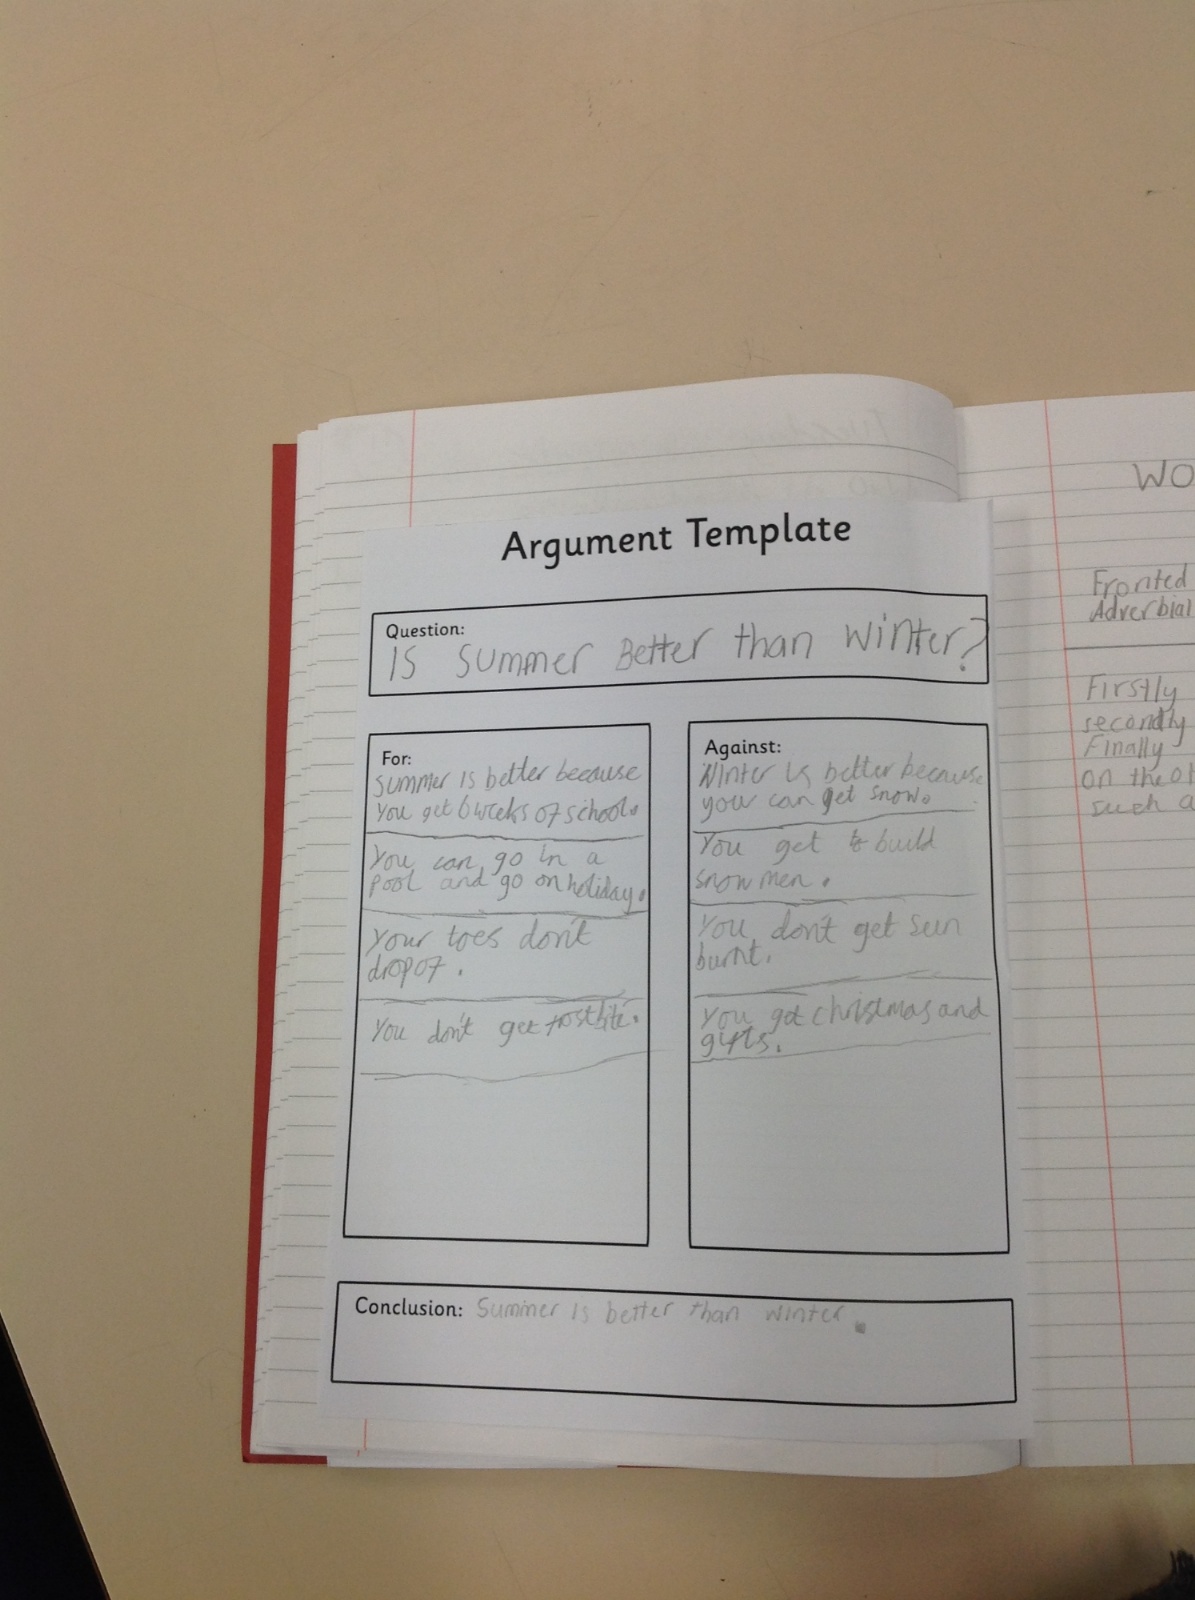 Argument Template
Question:
IS SUMMER Better than winter?
For:
Summer is better because
you get 6 weeks of school.
You can go in a
pool and go on holiday.
Your toes don't
drop of.
You don't get frostbite.
Against:
Winter is better because
your can get snow.
You get to build
snow men.
You don't get sun
burnt.
You got christmas and
gifts.
Conclusion: Summer is better than winter.
WO
Fronted
Adverbial
Firstly
secondly
Finally
on the ot
such a